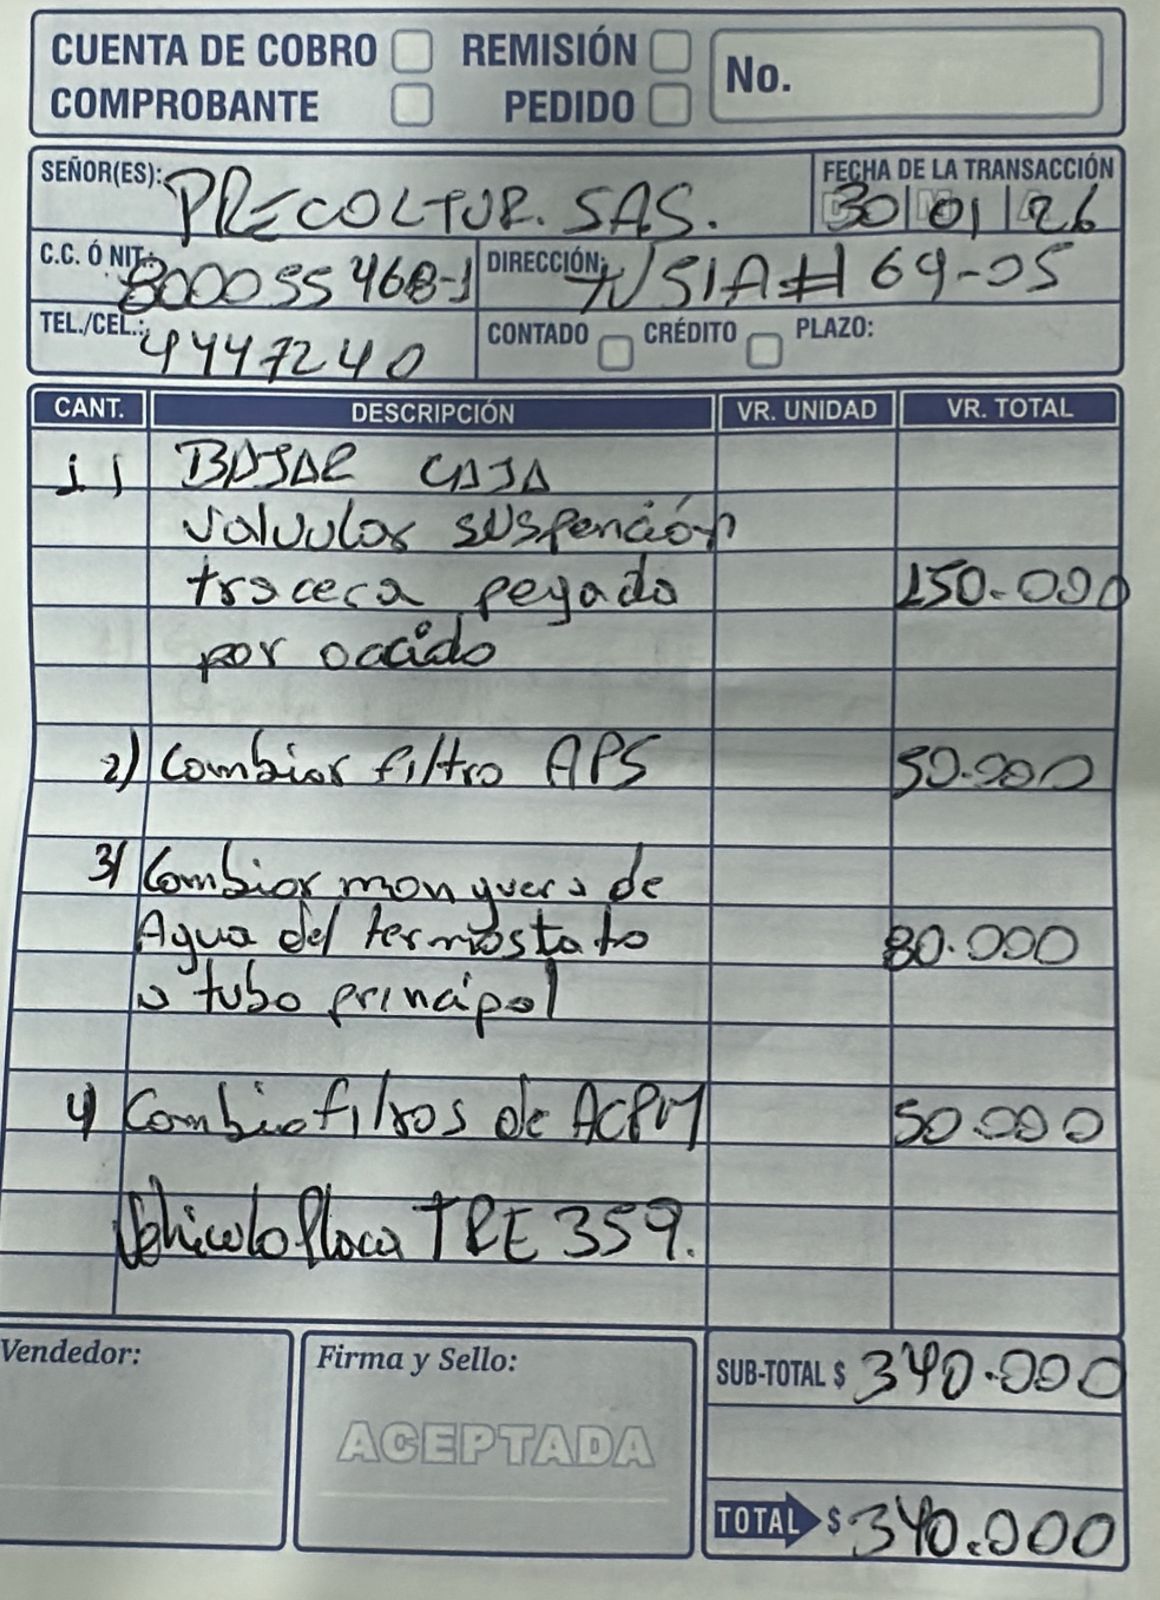 CUENTA DE COBRO REMISIÓN No.
COMPROBANTE PEDIDO
SEÑOR(ES): PRECOLTUR. SAS.
FECHA DE LA TRANSACCIÓN
30 01 26
C.C. Ó NIT.: 800055468-1 DIRECCIÓN: TV 51A # 69-05
TEL./CEL.: 4447240 CONTADO CRÉDITO PLAZO:
CANT. DESCRIPCIÓN VR. UNIDAD VR. TOTAL
1) BAJAR CAJA
valvulas suspención
tracera pegado 150.000
por occido
2) Cambiar filtro APS 50.000
3) Cambiar manguera de
Agua del termostato 80.000
a tubo principal
4) Cambio filtros de ACPM 50.000
Vehiculo Placa TRE 359.
Vendedor: Firma y Sello: SUB-TOTAL $ 340.000
ACEPTADA
TOTAL $ 340.000